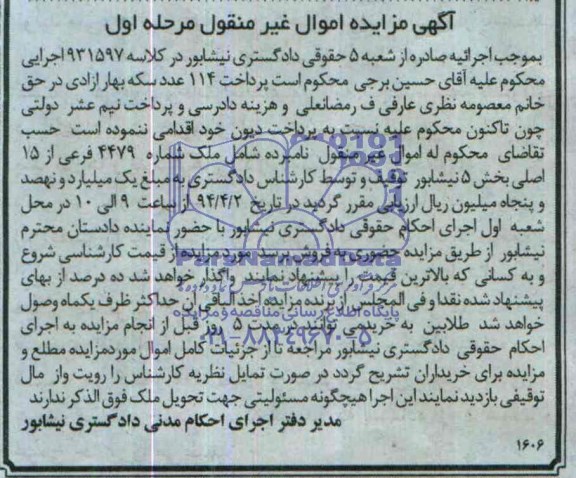 آگهی مزایده اموال غیر منقول مرحله اول
بموجب اجرائیه صادره از شعبه ۵ حقوقی دادگستری نیشابور در کلاسه ۹۳۱۵۹۷ اجرایی
محکوم علیه آقای حسین برجی محکوم است پرداخت ۱۱۴ عدد سکه بهار ازادی در حق
خانم معصومه نظری عارفی ف رمضانعلی و هزینه دادرسی و پرداخت نیم عشر دولتی
چون تاکنون محکوم علیه نسبت به پرداخت دیون خود اقدامی ننموده است حسب
تقاضای محکوم له اموال غیر منقول نامبرده شامل ملک شماره ۴۴۷۹ فرعی از ۱۵
اصلی بخش ۵ نیشابور توقیف و توسط کارشناس دادگستری به مبلغ یک میلیارد و نهصد
و پنجاه میلیون ریال ارزیابی مقرر گردید در تاریخ ۹۴/۴/۲ از ساعت ۹ الی ۱۰ در محل
شعبه اول اجرای احکام حقوقی دادگستری نیشابور با حضور نماینده دادستان محترم
نیشابور از طریق مزایده حضوری به فروش برسد مورد مزایده از قیمت کارشناسی شروع
و به کسانی که بالاترین قیمت را پیشنهاد نمایند واگذار خواهد شد ده درصد از بهای
پیشنهاد شده نقدا و فی المجلس از برنده مزایده اخذ الباقی آن حداکثر ظرف یکماه وصول
خواهد شد طلابین به خریدمی توانند در مدت ۵ روز قبل از انجام مزایده به اجرای
احکام حقوقی دادگستری نیشابور مراجعه تا از جزئیات کامل اموال موردمزایده مطلع و
مزایده برای خریداران تشریح گردد در صورت تمایل نظریه کارشناس را رویت واز مال
توقیفی بازدید نمایند این اجرا هیچگونه مسئولیتی جهت تحویل ملک فوق الذکر ندارند
مدیر دفتر اجرای احکام مدنی دادگستری نیشابور
۱۶۰۶
ParsNamadData
پایگاه اطلاع رسانی مناقصه و مزایده
۰۲۱-۸۸۳۴۹۶۷۰-۵